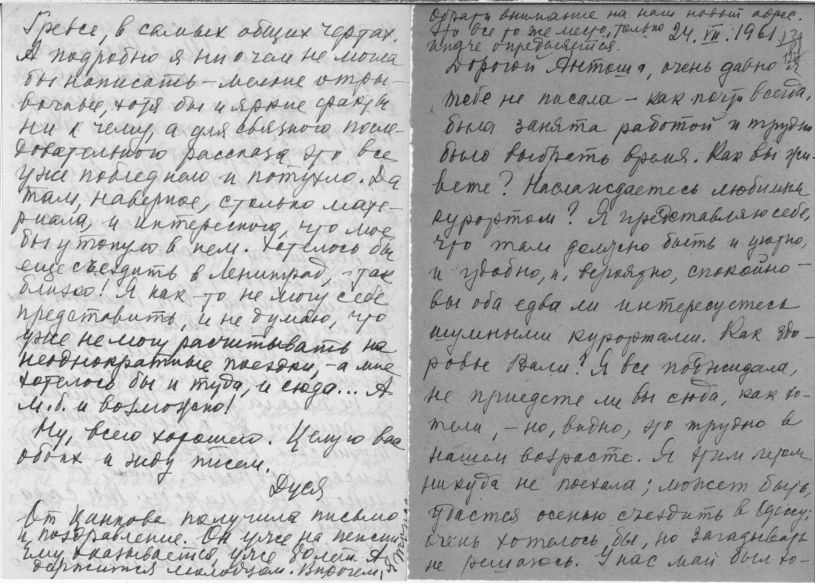 Гревсе, в самых общих чертах.
А подробно я ни о чем не могла
бы написать – мелкие отры-
вочные, хотя бы и яркие факты
ни к чему, а для связного после-
довательного рассказа это все
уже поблекло и потухло. Да
там, наверное, столько мате-
риала, и интересного, что мое
бы утонуло в нем. Хотелось бы
еще съездить в Ленинград, – так
близко! Я как-то не могу себе
представить, и не думаю, что
уже не могу расчитывать на
неоднократные поездки, – а мне
хотелось бы и туда, и сюда... А
м.б. и возможно!
Ну, всего хорошего. Целую вас
обоих и жду писем.
Дуся
От получила письмо
и поздравление. Он уже на пенсии
ему, оказывается, уже А
держится молодцом. Впрочем,
Обрати внимание на наш новый адрес.
Это все то же место, только
иначе определяется.
24. VII. 1961
Дорогой Антоша, очень давно я
тебе не писала – как почти всегда,
была занята работой и трудно
было выбрать время. Как вы жи-
вете? Наслаждаетесь любимым
курортом? Я представляю себе,
что там должно быть и уютно,
и удобно, и, вероятно, спокойно –
вы оба едва ли интересуетесь
шумными курортами. Как здо-
ровье Вали? Я все поджидала,
не приедете ли вы сюда, как хо-
тели, – но, видно, это трудно в
нашем возрасте. Я этим летом
никуда не поехала; может быть,
удастся осенью съездить в Одессу;
очень хотелось бы, но загадывать
не решаюсь. У нас май был хо-